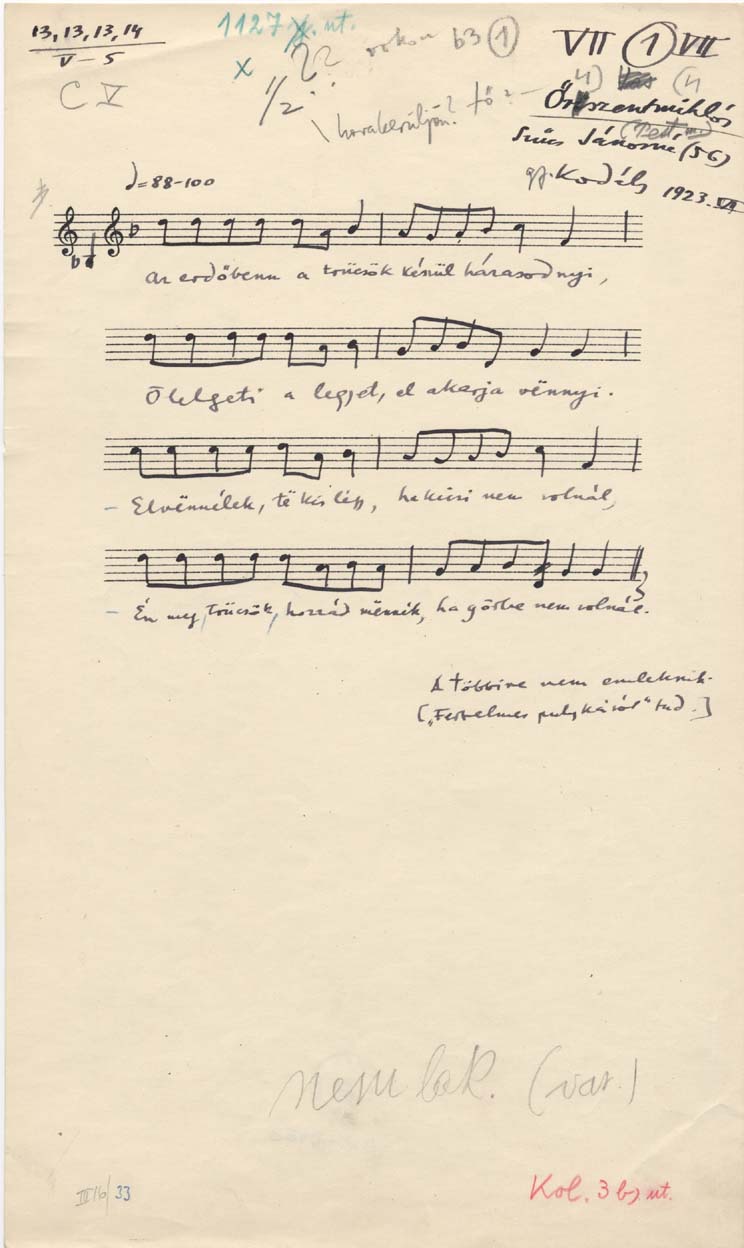 13, 13, 13, 14
V – 5
C V
1127
nt.
x
1/2
??
rokon b3 ①
hovakerüljön? fő? –
VII ① VII
Őrszentmiklós
(Pest m.)
Szűcs Jánosné (56)
gy. Kodály 1923. VII
♩=88-100
Az erdőbenn a trücsök készül házasodnyi,
Ölelgeti a legyet, el akarja vënnyi.
– Elvënnélek, të kis légy, ha kicsi nem volnál,
– Én meg, trücsök, hozzád mënnik, ha görbe nem volnál.
A többire nem emlekszik.
["Fertelmes pulykáról" tud.]
nem lak. (var.)
III 16/33
Kol. 3 b) nt.